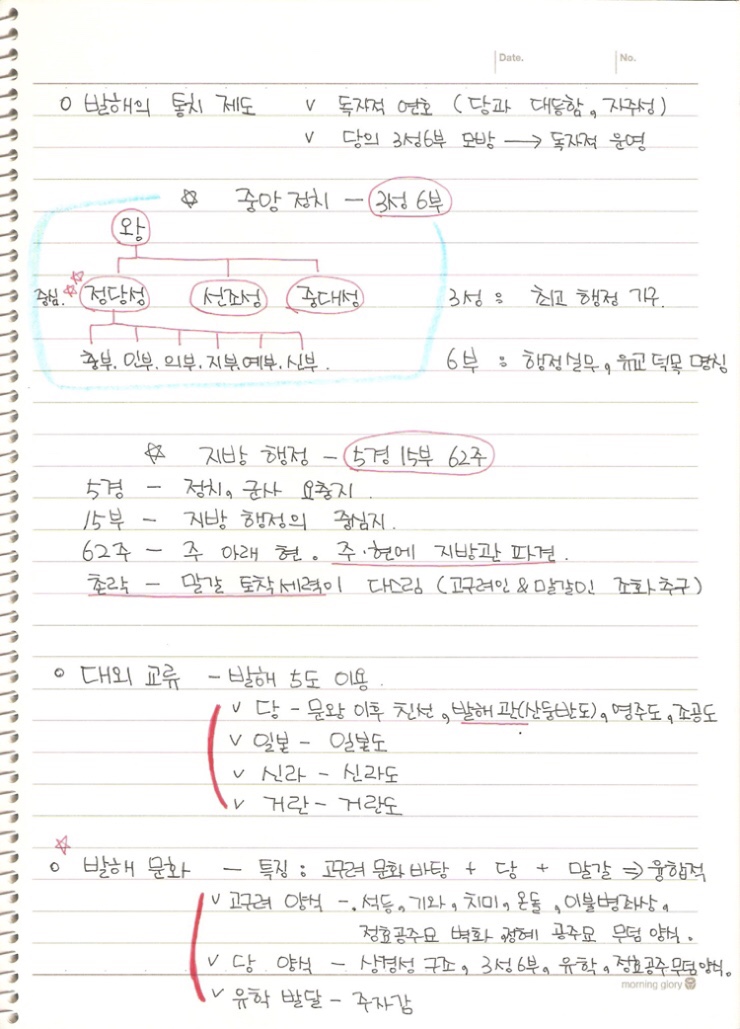 Date. No.
o 발해의 통치 제도 v 독자적 연호 (당과 대등함, 자주성)
v 당의 3성6부 모방 → 독자적 운영
☆ 중앙 정치 - 3성 6부
왕
중심. ☆☆ 정당성 선조성 중대성 3성 : 최고 행정 기구.
충부. 인부. 의부. 지부. 예부. 신부. 6부 : 행정실무, 유교 덕목 명칭
☆ 지방 행정 - 5경 15부 62주
5경 - 정치, 군사 요충지.
15부 - 지방 행정의 중심지.
62주 - 주 아래 현. 주·현에 지방관 파견.
촌락 - 말갈 토착세력이 다스림 (고구려인 & 말갈인 조화 추구)
o 대외 교류 - 발해 5도 이용.
v 당 - 문왕 이후 친선, 발해관(산둥반도), 영주도, 조공도
v 일본 - 일본도
v 신라 - 신라도
v 거란 - 거란도
☆
o 발해 문화 - 특징 : 고구려 문화 바탕 + 당 + 말갈 ⇒ 융합적
v 고구려 양식 - 석등, 기와, 치미, 온돌, 이불병좌상,
정효공주묘 벽화 정혜 공주묘 무덤 양식.
v 당 양식 - 상경성 구조, 3성 6부, 유학, 정효공주 무덤 양식.
morning glory
v 유학 발달 - 주자감